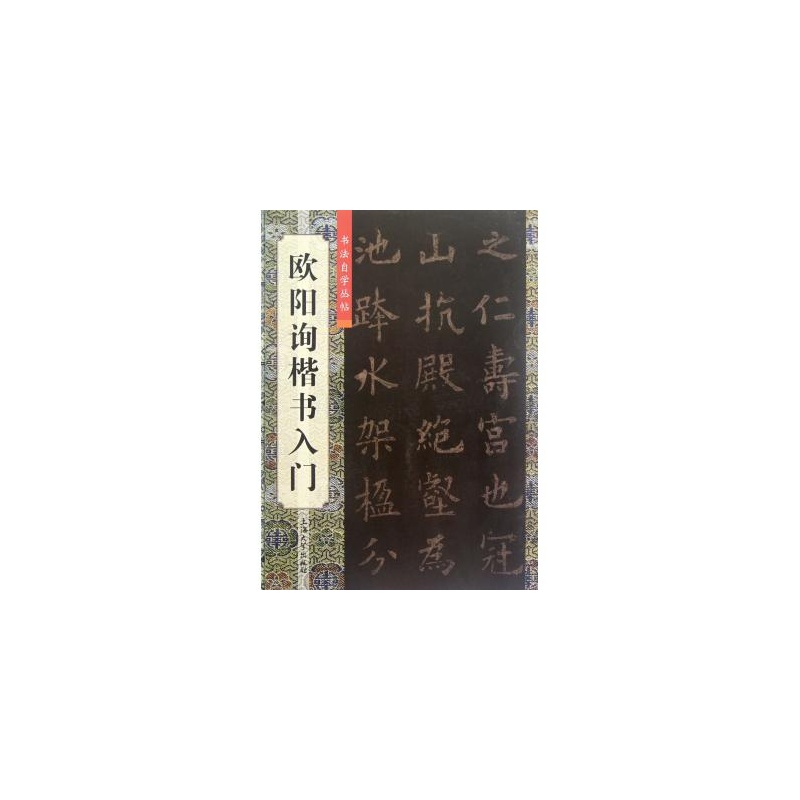 欧阳询楷书入门
上海大学出版社
书法自学丛帖
之仁壽宫也冠
山抗殿絶壑為
池跨水架楹分